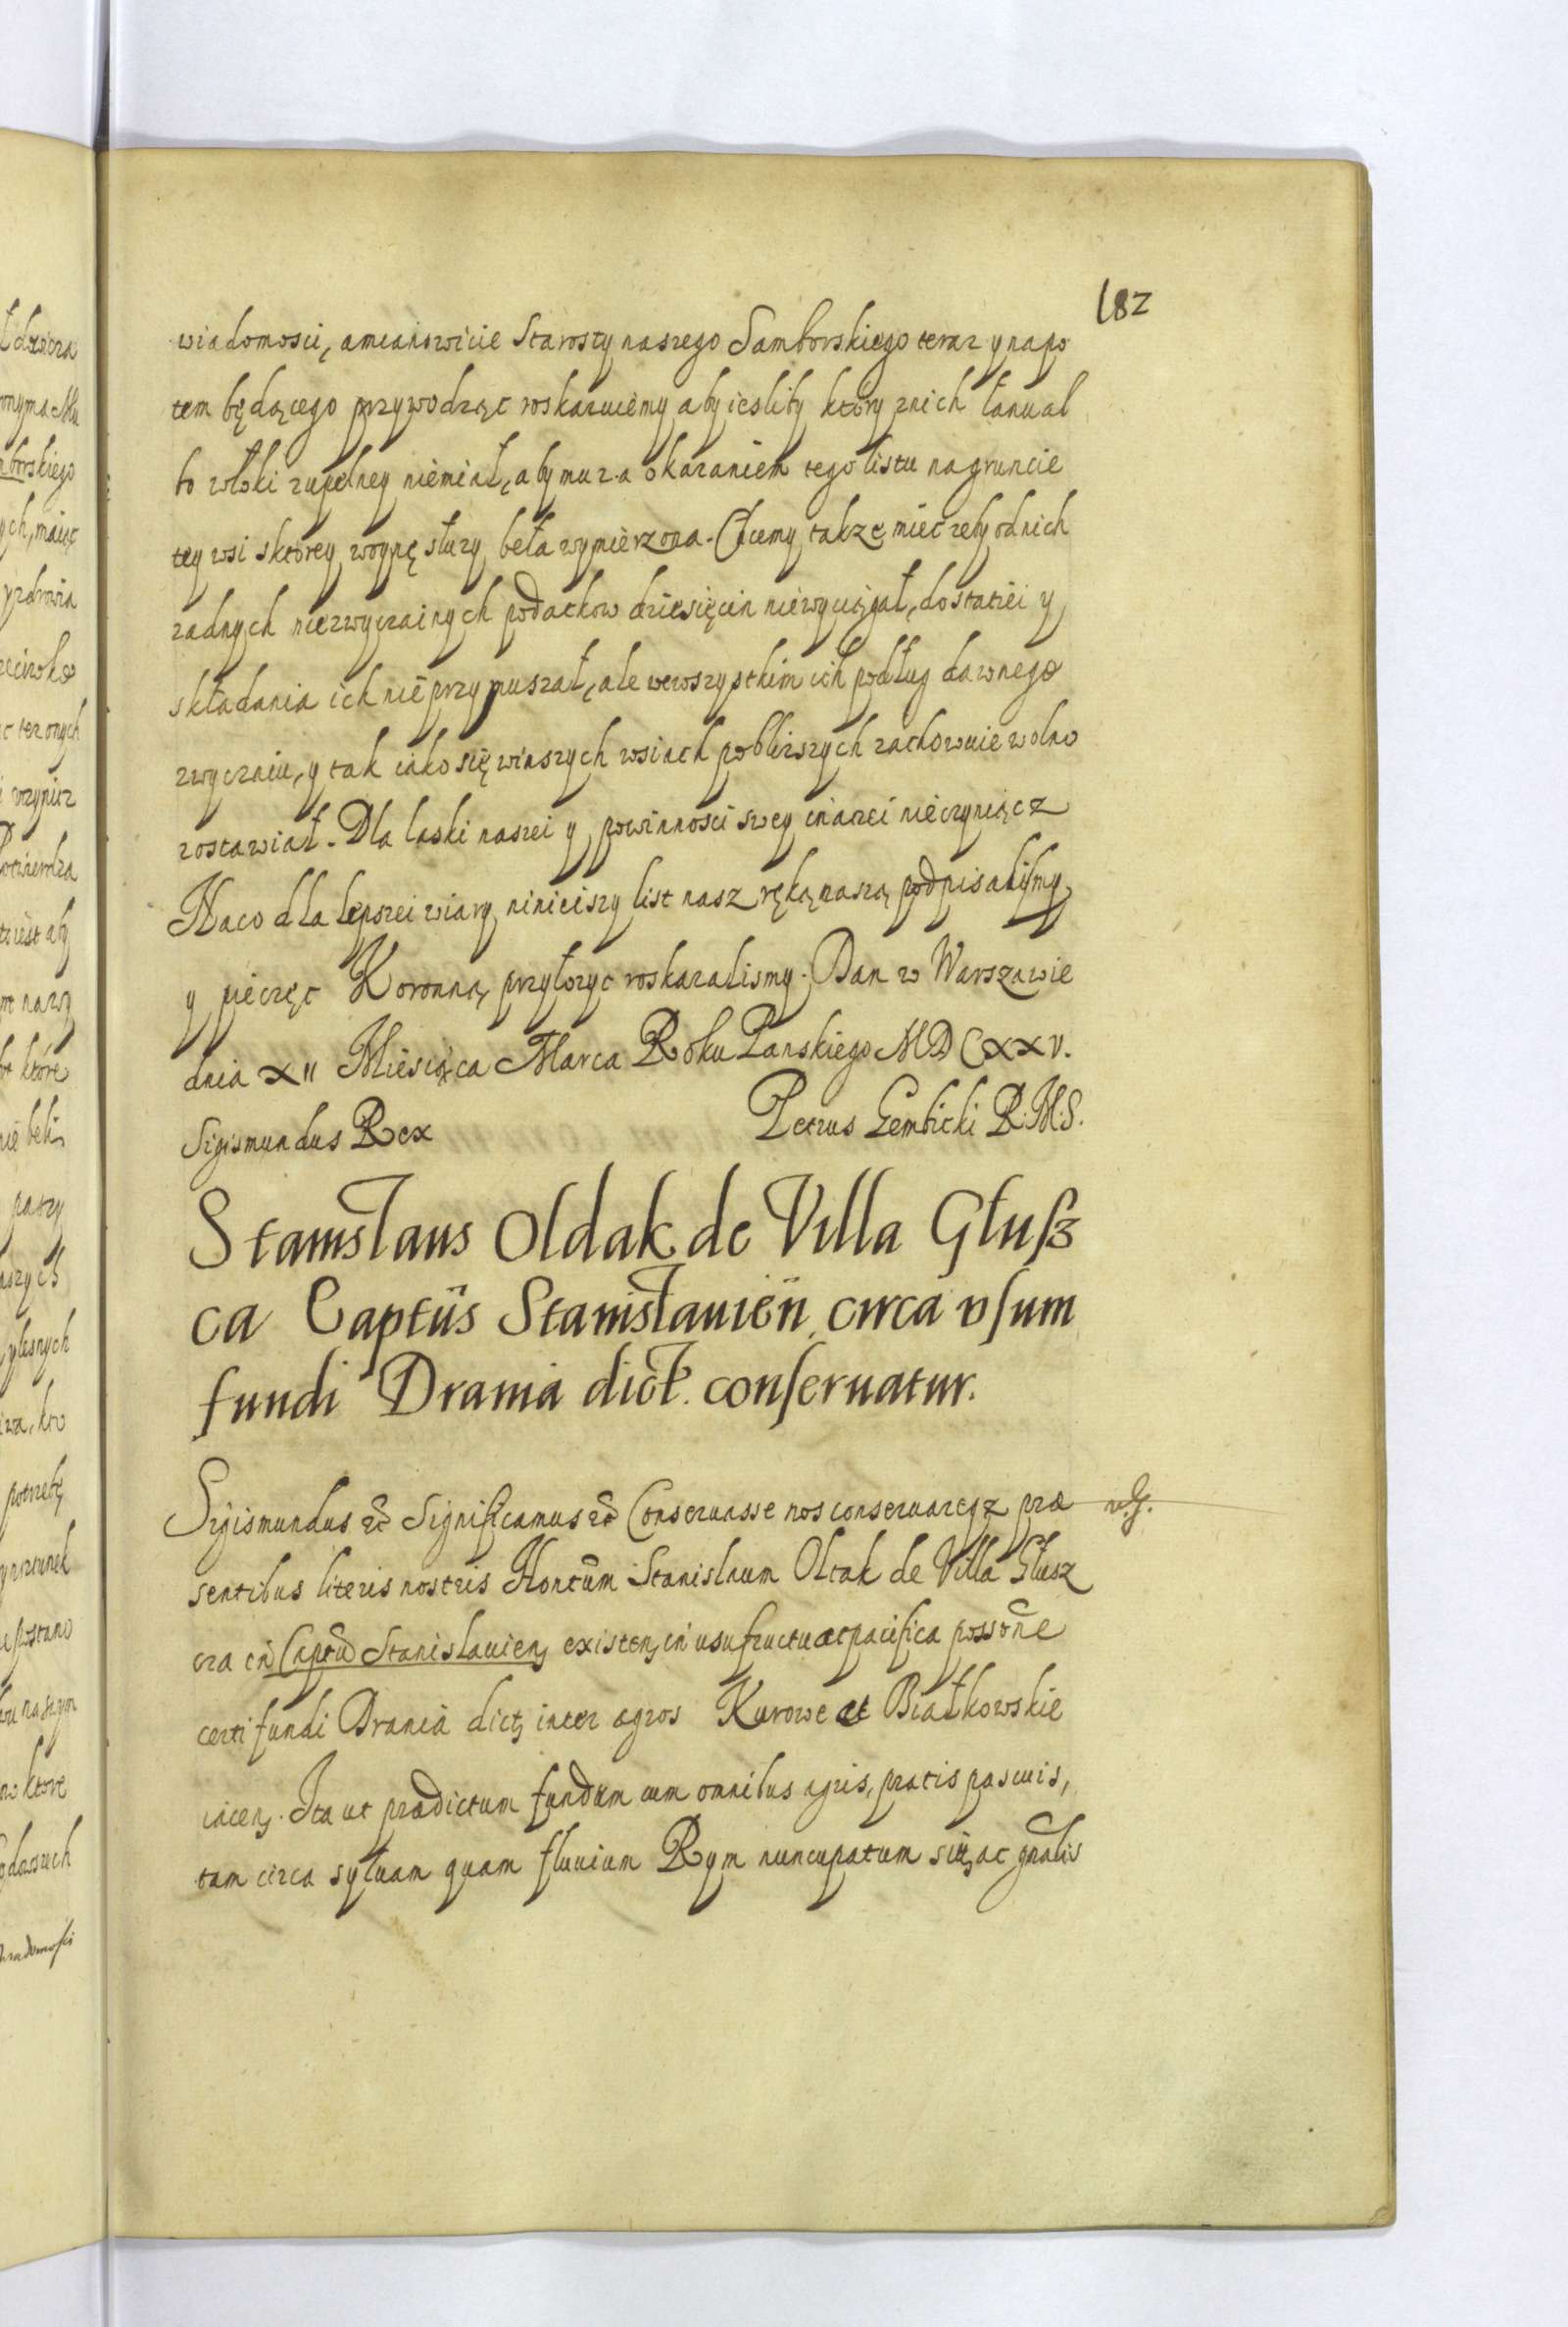 182
wiadomosci, amianowicie Starosty naszego Samborskiego teraz y napo
tem będącego przywodząc roskazuiemy aby iesliby ktory znich łanu al
bo włoki zupelney niemiał, aby mu za okazaniem tego listu na gruncie
tey wsi sktorey woynę służy beła wymierzona. Chcemy takze miec zeby od nich
zadnych niezwyczainych podatkow dziesięcin niewyciągał, do staciei y
składania ich nie przymuszał, ale wewszystkim ich podług dawnego
zwyczaiu, y tak iako się winszych wsiach pobliszych zachowuie wolno
zostawiał. Dla laski naszei y powinnosci swey inaczei nieczyniącz
Naco dla lepszei wiary ninieiszy list nasz ręką naszą podpisalismy
y pieczęc Koronną przyłozyc roskazalismy. Dan w Warszawie
dnia XII Miesiąca Marca Roku Panskiego MDCXXV.
Sigismundus Rex Petrus Gembicki R. M. S.
Stanislaus Oldak de Villa Głusz
ca Captūs Stanisłauień circa vsum
fundi Drania dict. conseruatur.
Sigismundus &c Significamus &c Conseruasse nos conseruareqz præ
v.g.
sentibus literis nostris Hontūm Stanislaum Oltak de Villa Glusz
cza in Captū Stanislauien, existen, in usufructu ac pacifica possōne
certi fundi Drania dict, inter agros Kurowe et Białkowskie
iacen, . Ita ut prædictum fundum cum omnibus agris, pratis pascuis,
tam circa syluam quam fluuium Rym nuncupatum sit, ac gnālis